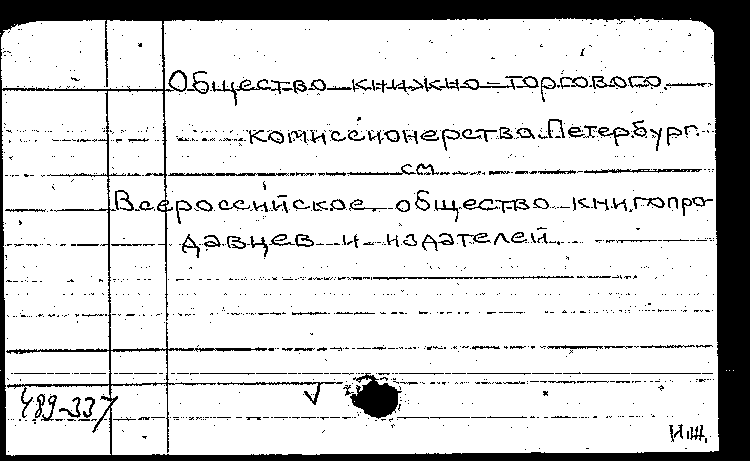 Общество книжно-торгового
комиссионерства. Петербург.
см
Всероссийское общество книгопро-
давцев и издателей.
489-337
И.Ж.